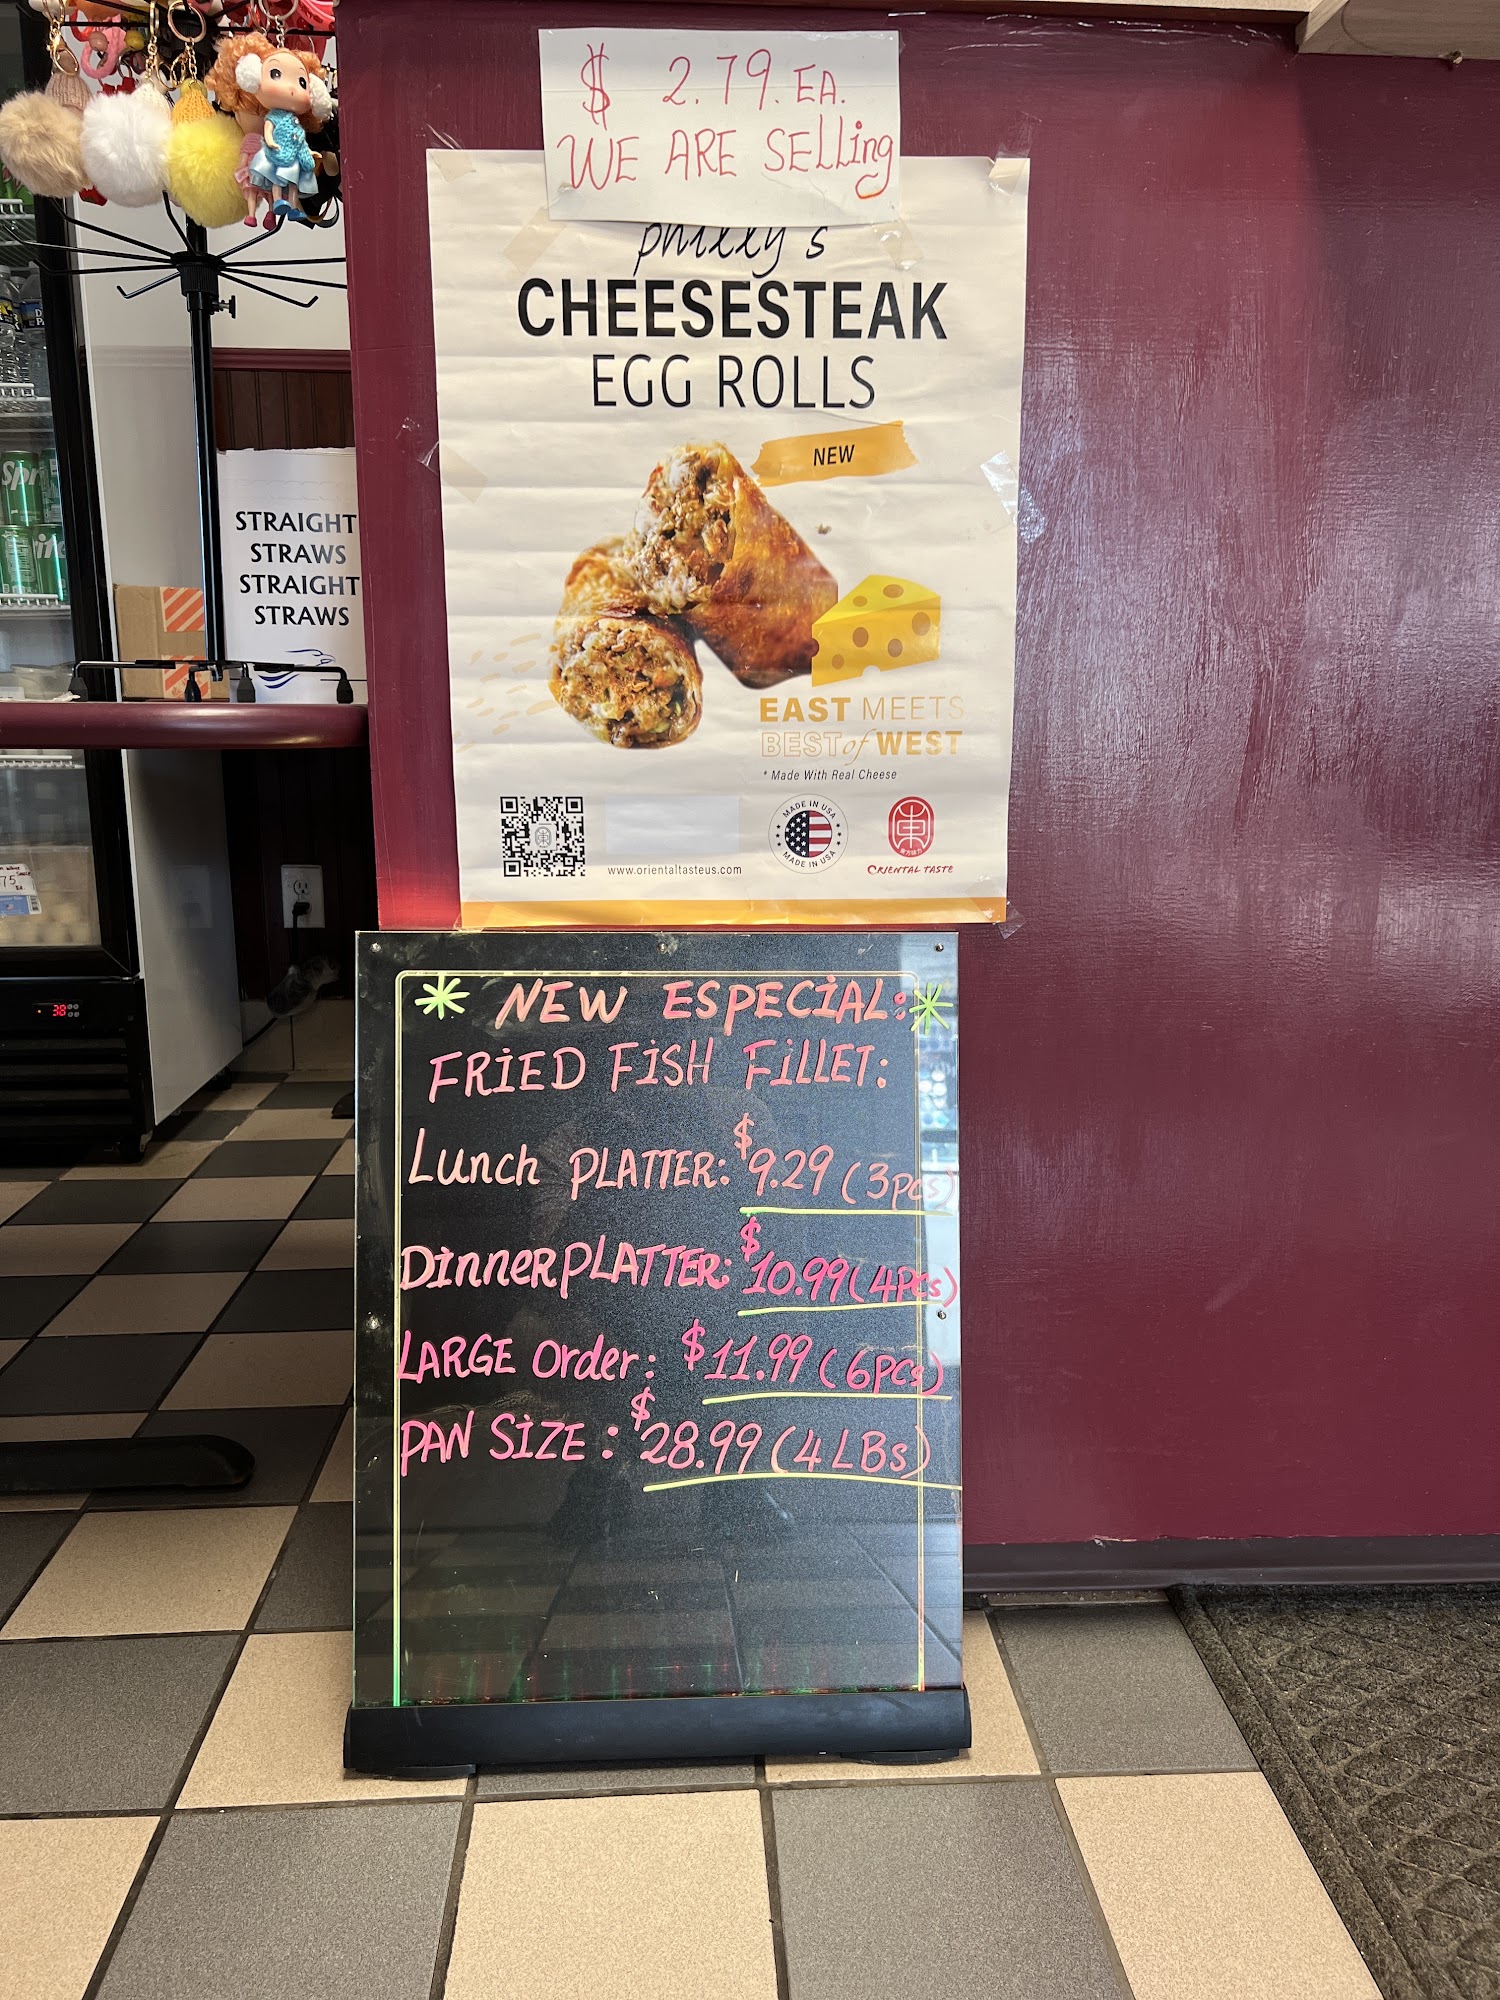 $ 2.79. EA.
WE ARE SELLing
philly's
CHEESESTEAK
EGG ROLLS
NEW
EAST MEETS
BEST of WEST
* Made With Real Cheese
www.orientaltasteus.com
MADE IN USA
MADE IN USA
ORIENTAL TASTE
STRAIGHT
STRAWS
STRAIGHT
STRAWS
38
* NEW ESPECIAL: *
FRIED FISH FILLET:
Lunch PLATTER: $9.29 (3pcs)
DinnerPLATTER: $10.99 (4Pcs)
LARGE Order: $11.99 (6PCs)
PAN SIZE : $28.99 (4 LBs)